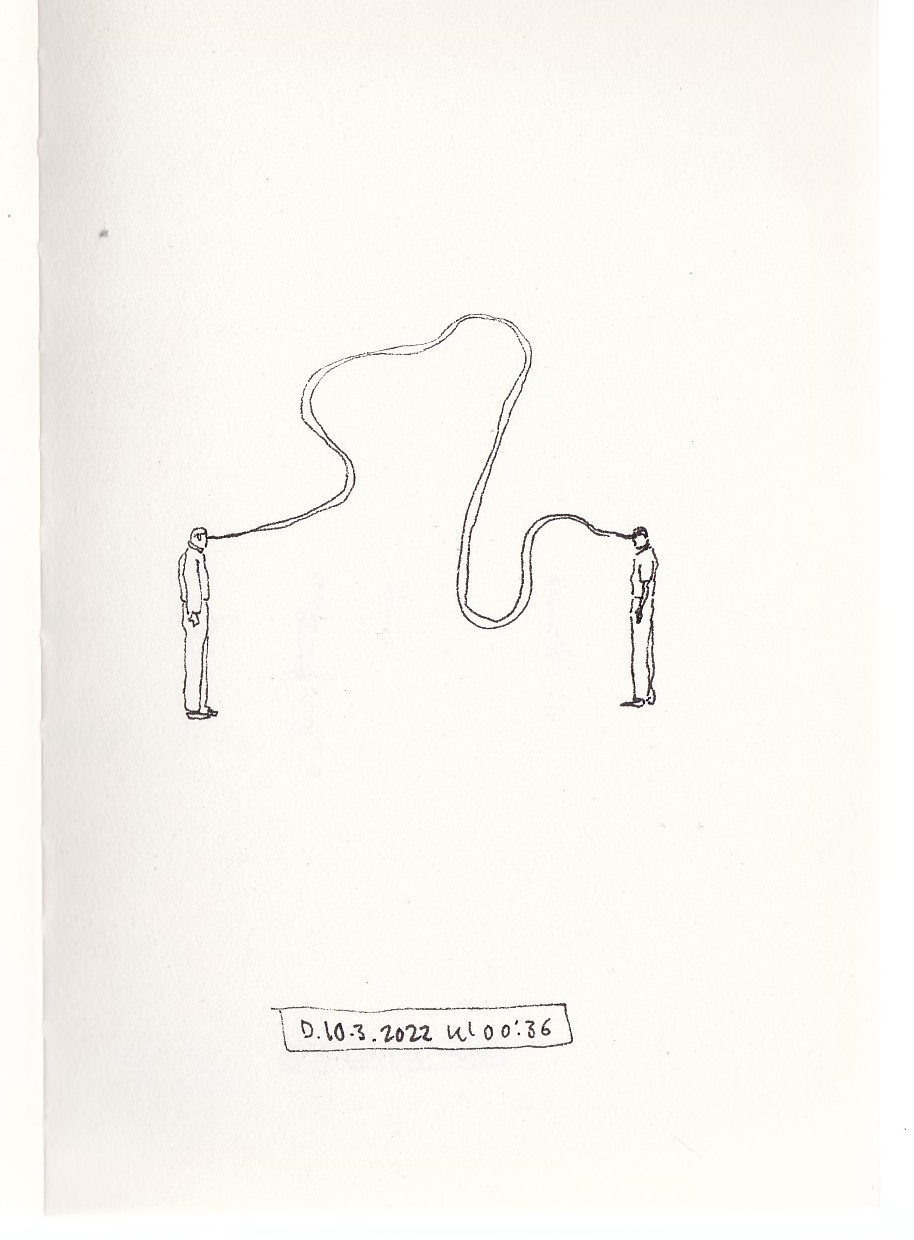 D.10.3.2022 kl 00:36